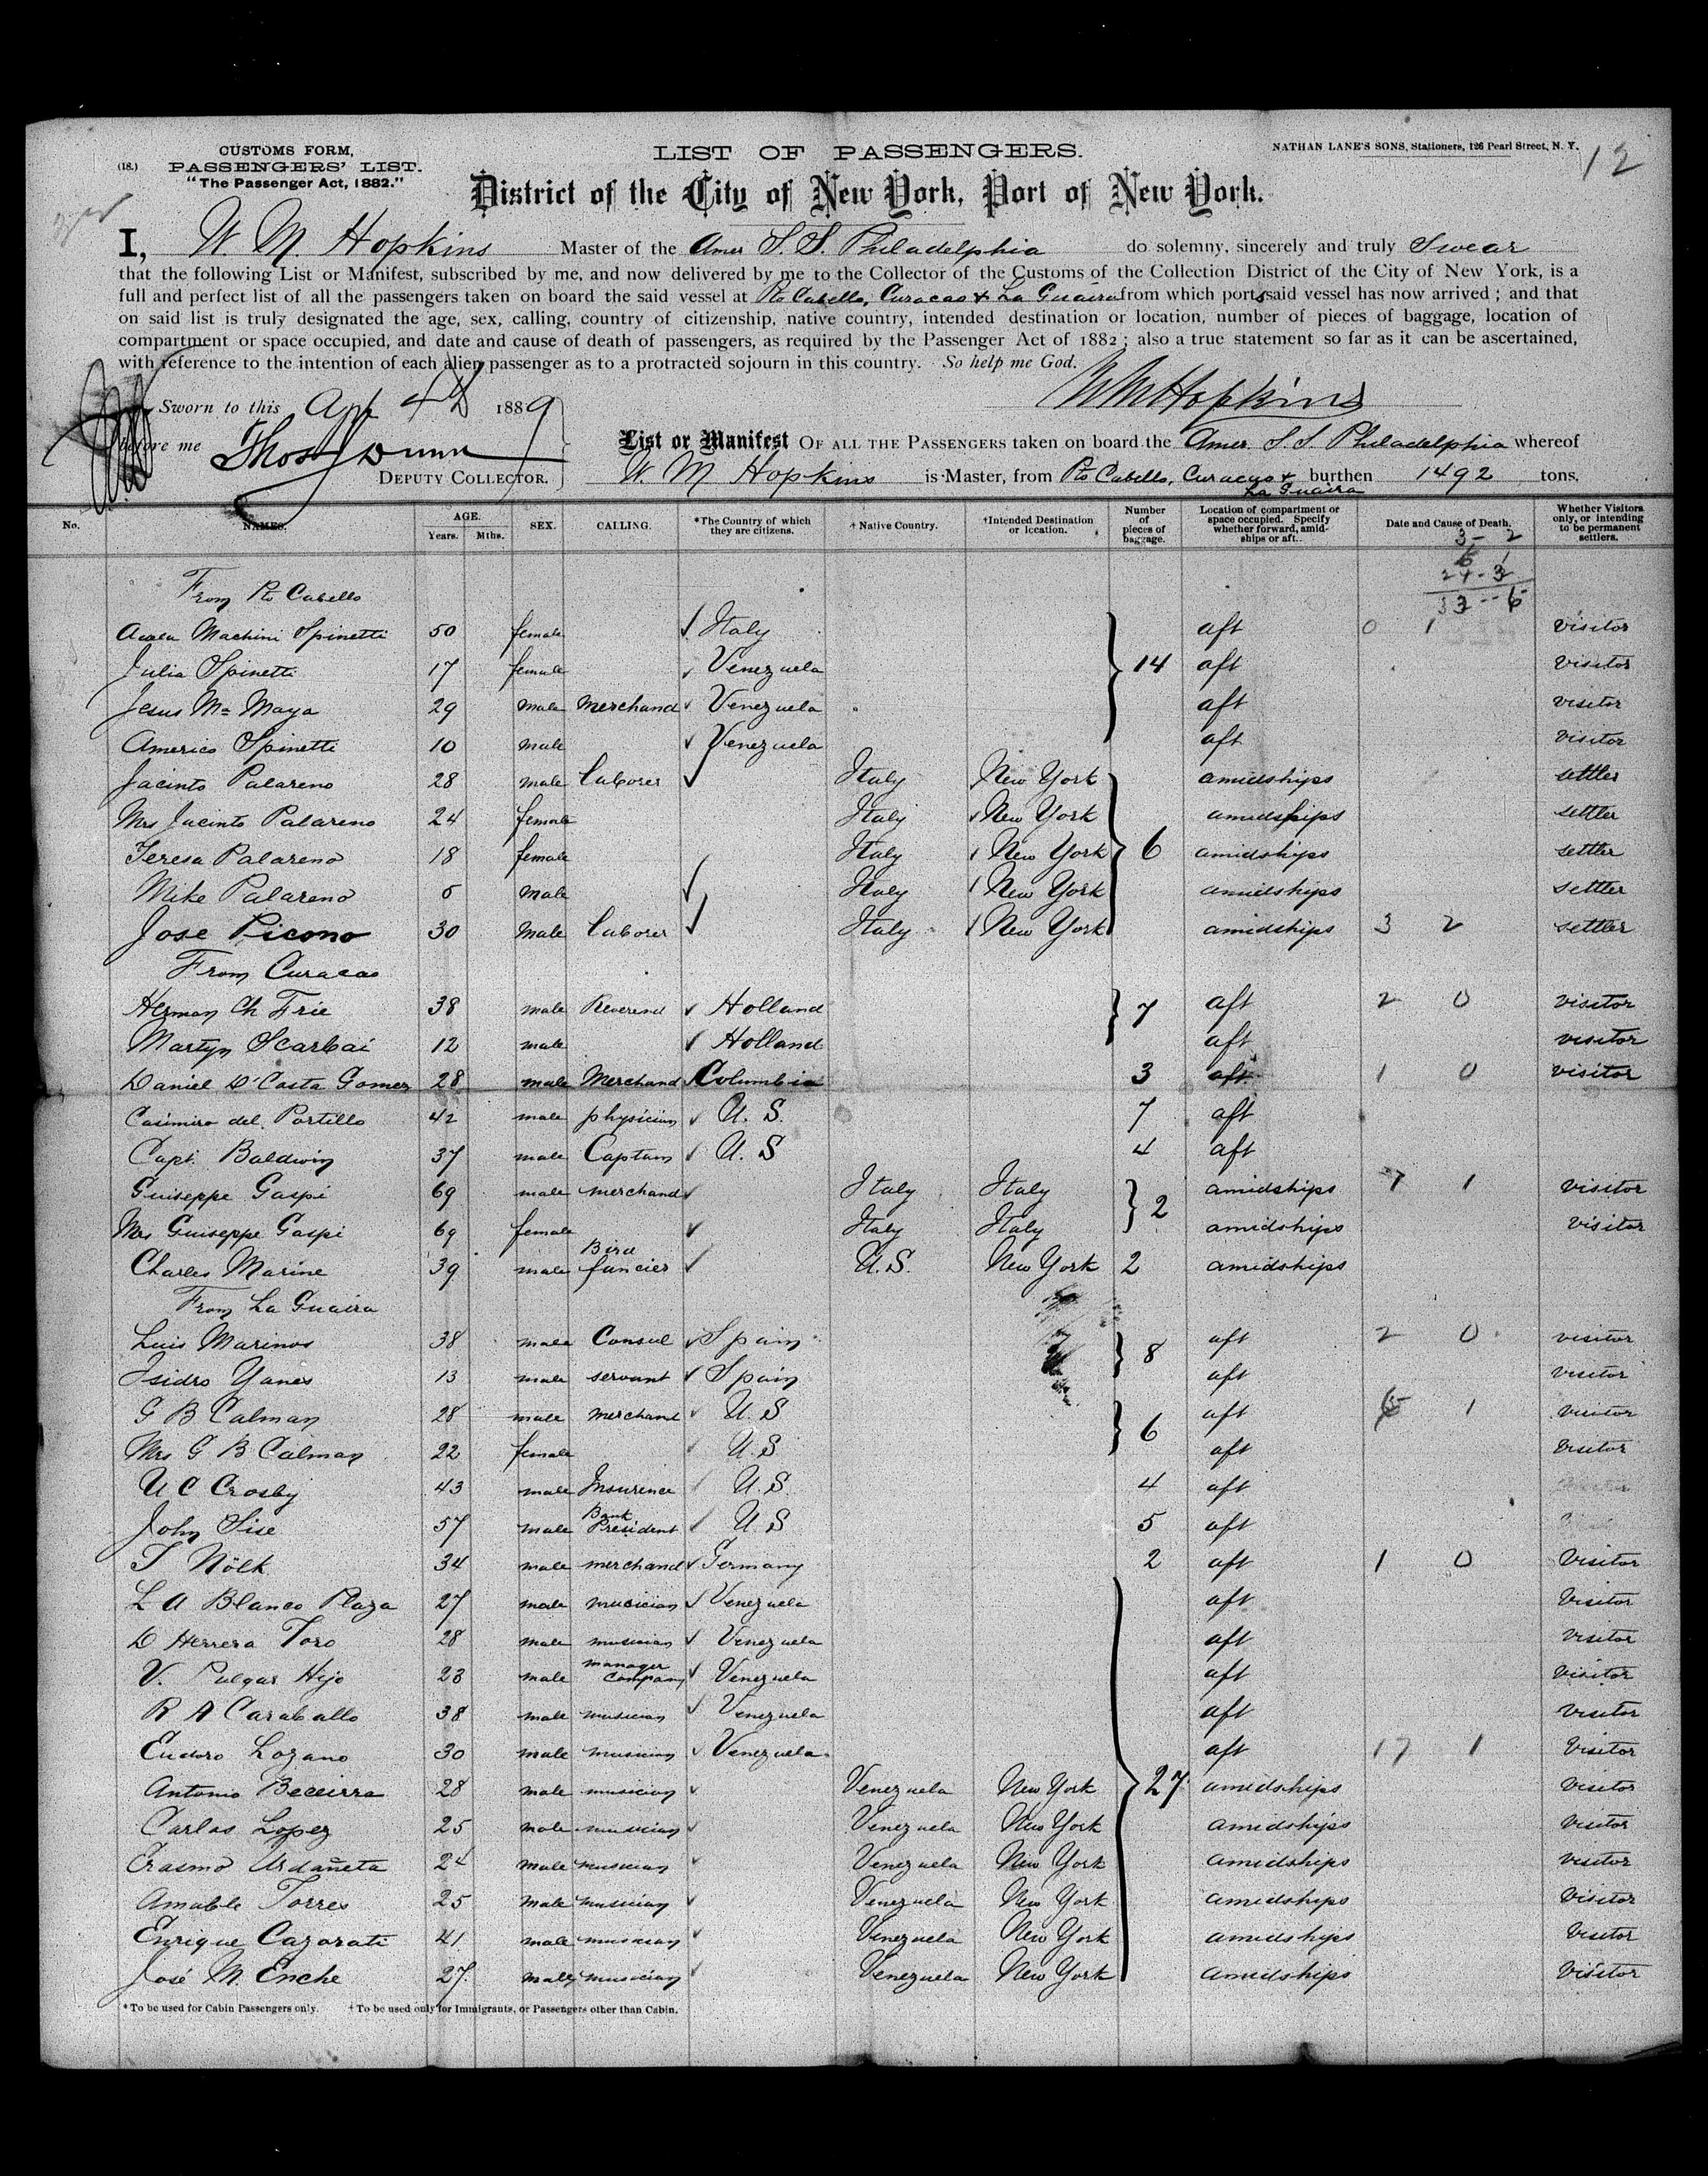 CUSTOMS FORM,
(18.) PASSENGERS' LIST.
"The Passenger Act, 1882."
LIST OF PASSENGERS.
NATHAN LANE'S SONS, Stationers, 126 Pearl Street, N. Y.
12
District of the City of New York, Port of New York.
I, W. M. Hopkins Master of the Amer S. S. Philadelphia do solemny, sincerely and truly Swear
that the following List or Manifest, subscribed by me, and now delivered by me to the Collector of the Customs of the Collection District of the City of New York, is a
full and perfect list of all the passengers taken on board the said vessel at Pto Cabello, Curacao & La Guaira from which ports said vessel has now arrived ; and that
on said list is truly designated the age, sex, calling, country of citizenship, native country, intended destination or location, number of pieces of baggage, location of
compartment or space occupied, and date and cause of death of passengers, as required by the Passenger Act of 1882 ; also a true statement so far as it can be ascertained,
with reference to the intention of each alien passenger as to a protracted sojourn in this country. So help me God.
WMHopkins
Sworn to this Apr 4th 1889
before me Thos J Dunn
DEPUTY COLLECTOR.
List or Manifest OF ALL THE PASSENGERS taken on board the Amer. S. S. Philadelphia whereof
W. M Hopkins is Master, from Pto Cabello, Curacao & La Guaira burthen 1492 tons,
No. NAMES. AGE. Years. Mths. SEX. CALLING. *The Country of which they are citizens. † Native Country. †Intended Destination or location. Number of pieces of baggage. Location of compartment or space occupied. Specify whether forward, amidships or aft. Date and Cause of Death. Whether Visitors only, or intending to be permanent settlers.
3 - 2
24 - 3
From Pto Cabello
Machini Spinetti 50 female Italy aft 0 1 visitor
Julia Spinetti 17 female Venezuela 14 aft visitor
Jesus Ma Maya 29 male merchand Venezuela aft visitor
Americo Spinetti 10 male Venezuela aft visitor
Jacinto Palareno 28 male laborer Italy New York amidships settler
Mrs Jacinto Palareno 24 female Italy New York amidships settler
Teresa Palareno 18 female Italy New York 6 amidships settler
Mike Palareno male Italy New York amidships settler
Jose Picono 30 male laborer Italy New York amidships 3 2 settler
From Curacao
Herman Ch Frie 38 male Reverend Holland 7 aft 2 0 visitor
Martyn Scarbai 12 male Holland aft visitor
Daniel D'Costa Gomez 28 male Merchand Columbia 3 aft 1 0 visitor
Casimiro del Portillo 42 male physician U. S. 7 aft
Capt. Baldwin 37 male Captain U. S 4 aft
Guiseppe Gaspi 69 male merchand Italy Italy 2 amidships 7 1 visitor
Mrs Guiseppe Gaspi 69 female Italy Italy amidships visitor
Charles Marine 39 male Bird fancier U. S. New York 2 amidships
From La Guaira
Luis Marinos 38 male Consul Spain 8 aft 2 0 visitor
Isidro Yanes 13 male servant Spain aft visitor
G B Calman 28 male merchand U. S 6 aft 1 visitor
Mrs G B Calman 22 female U. S aft visitor
U C Crosby 43 male Insurence U. S. 4 aft
John Sise 57 male Bank President U. S 5 aft
T Nölk 34 male merchand Germany 2 aft 1 0 visitor
L A Blanco Plaza 27 male musician Venezuela aft visitor
D Herrera Toro 28 male musician Venezuela aft visitor
V. Pulgar Hijo 23 male manager company Venezuela aft visitor
R A Caraballo 38 male musician Venezuela aft visitor
Eudoro Lozano 30 male musician Venezuela aft 17 1 visitor
Antonio Beceirra 28 male musician Venezuela New York 27 amidships visitor
Carlos Lopez 25 male musician Venezuela New York amidships visitor
Erasmo Urdañeta 24 male musician Venezuela New York amidships visitor
Amable Torres 25 male musician Venezuela New York amidships visitor
Enrique Cazorati 41 male musician Venezuela New York amidships visitor
José M. Enche 27 male musician Venezuela New York amidships visitor
*To be used for Cabin Passengers only. †To be used only for Immigrants, or Passengers other than Cabin.